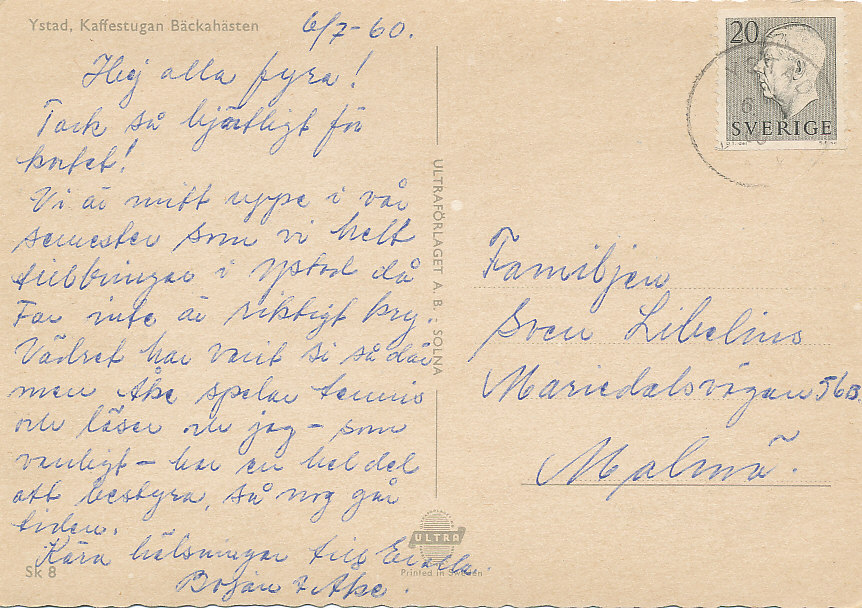 Ystad, Kaffestugan Bäckahästen
6/7-60.
Hej alla fyra!
Tack så hjärtligt för
kortet!
Vi är mitt uppe i vår
semester som vi helt
tillbringar i Ystad då
Far inte är riktigt kry.
Vädret har varit si så där
men Åke spelar tennis
och läser och jag – som
vanligt – har en hel del
att bestyra, så nog går
tiden.
Kära hälsningar till Er alla.
Bojan & Åke.
Sk 8
ULTRAFÖRLAGET A. B. - SOLNA
ULTRA
Printed in Sweden
20
SVERIGE
Familjen
Sven Libelius
Mariedalsvägen 56B.
Malmö.